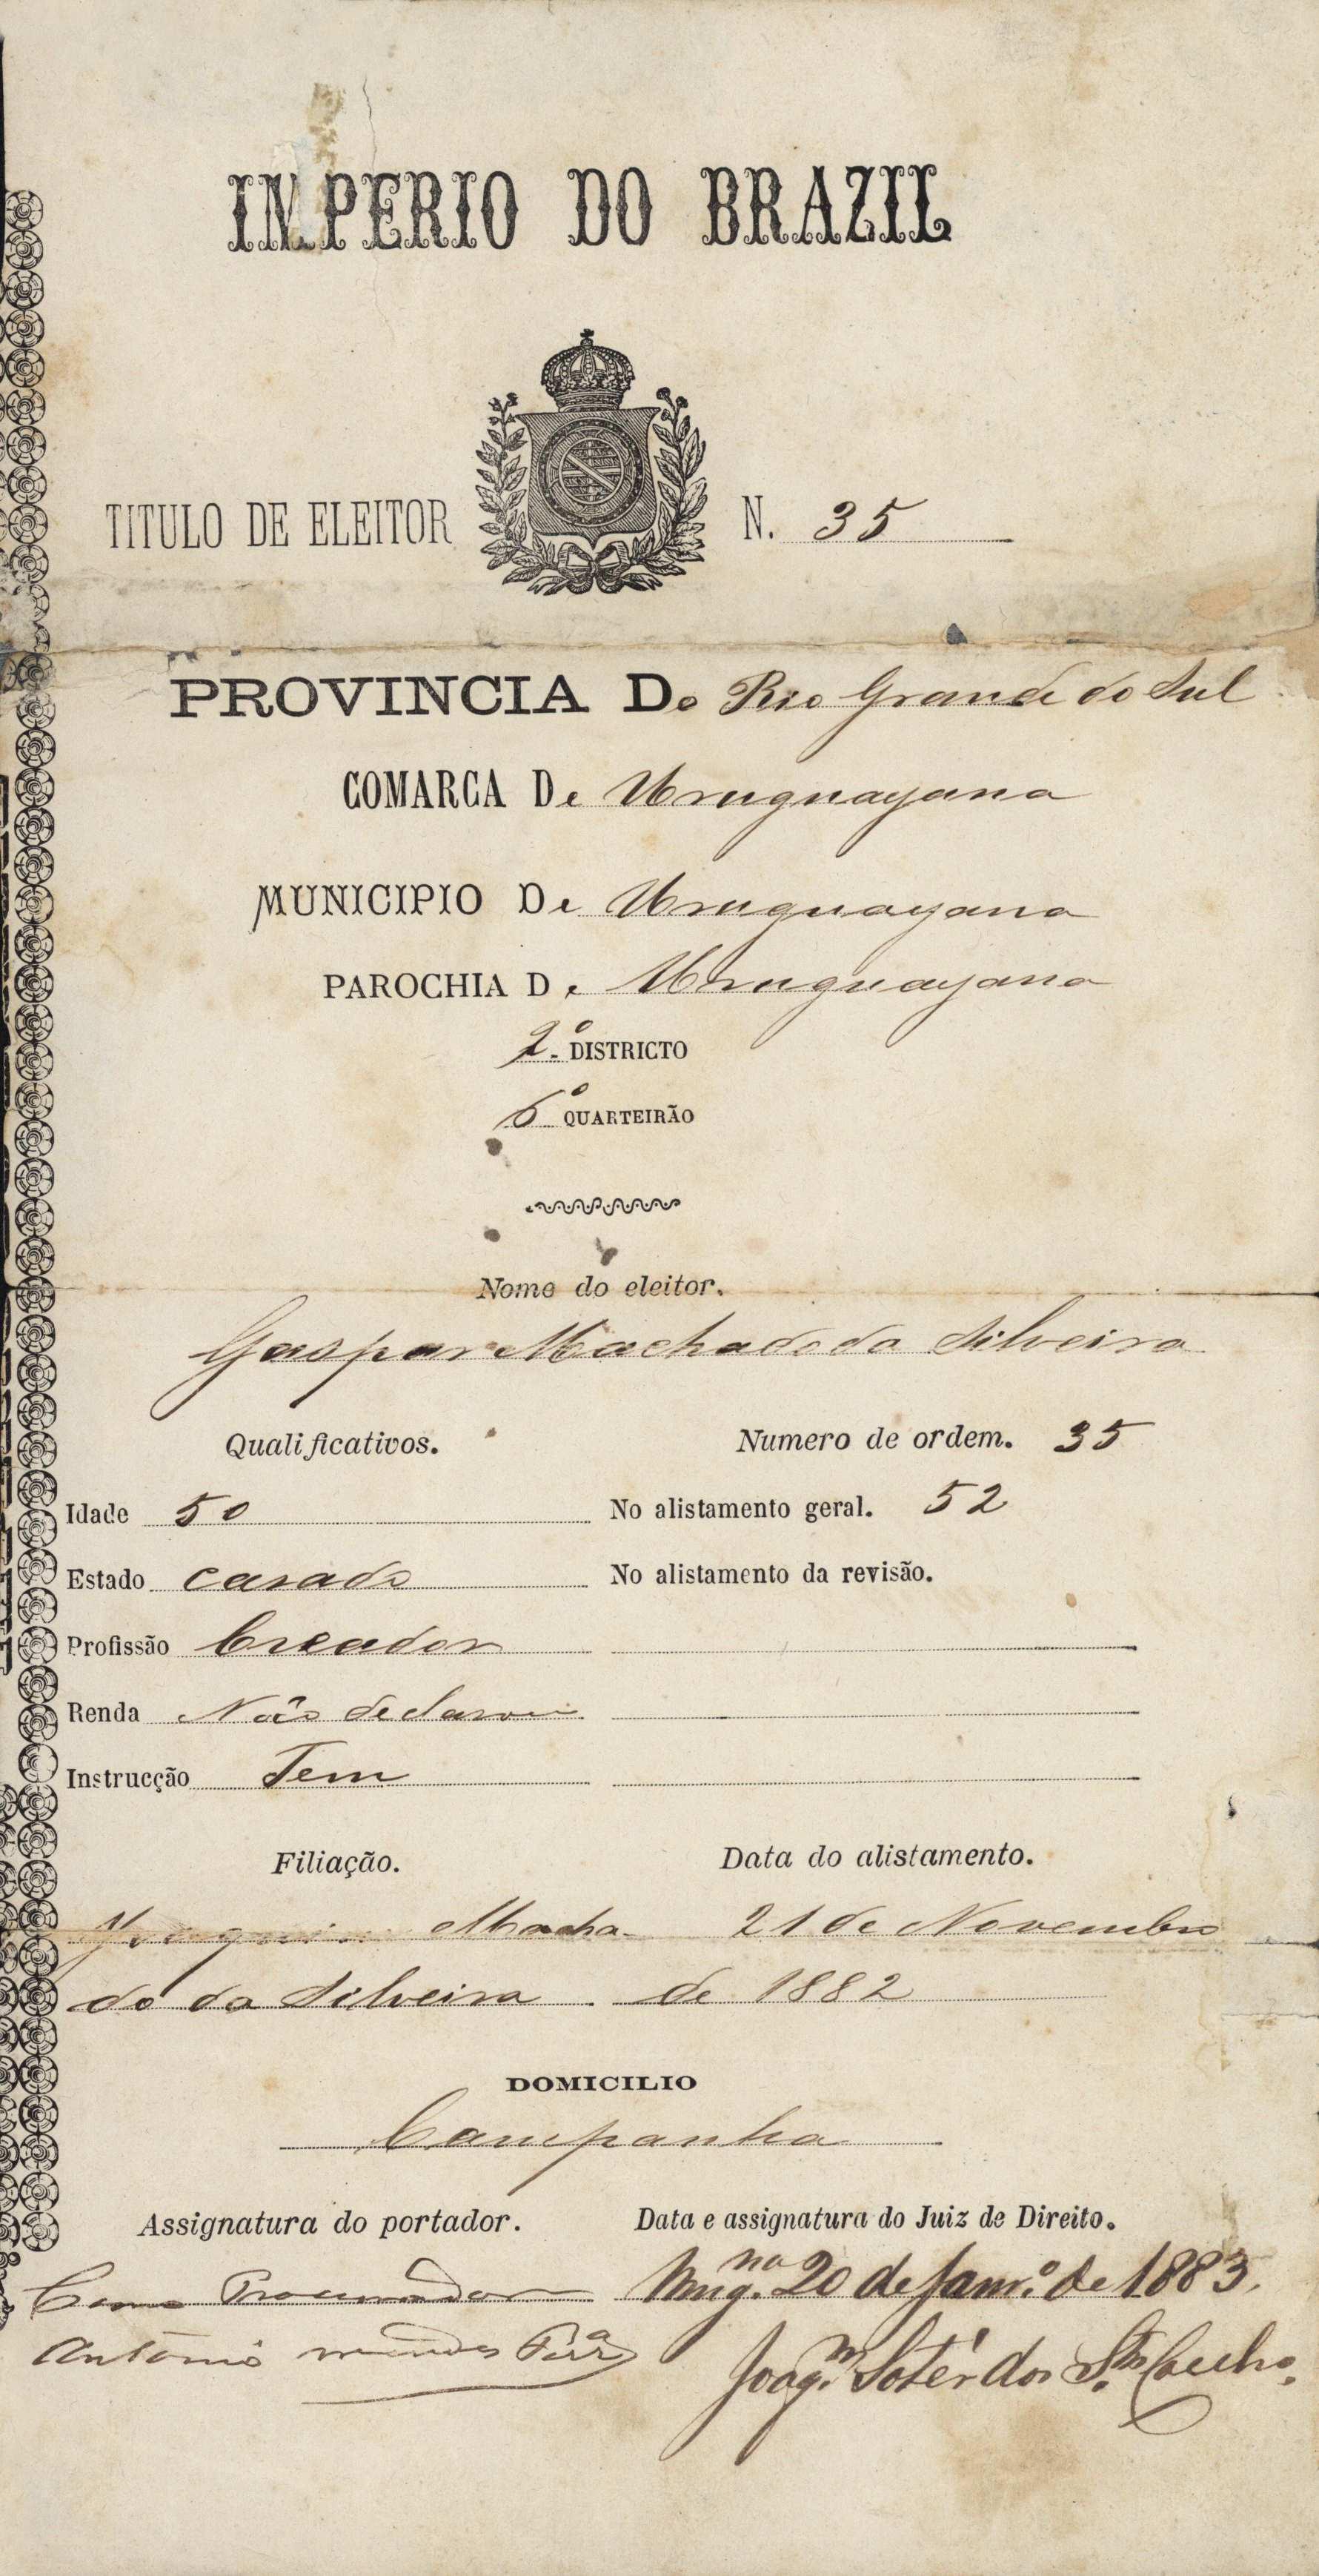 IMPERIO DO BRAZIL
TITULO DE ELEITOR N. 35
PROVINCIA Do Rio Grande do Sul
COMARCA De Uruguayana
MUNICIPIO De Uruguayana
PAROCHIA De Uruguayana
2º DISTRICTO
6º QUARTEIRÃO
Nome do eleitor.
Gaspar Machado da Silveira
Qualificativos. Numero de ordem. 35
Idade 50 No alistamento geral. 52
Estado casado No alistamento da revisão.
Profissão Creador
Renda Não declarou
Instrucção Tem
Filiação. Data do alistamento.
Joaquim Macha- 21 de Novembro
do da Silveira de 1882
DOMICILIO
Campanha
Assignatura do portador. Data e assignatura do Juiz de Direito.
Como Procurador Urug.na 20 de Janr.o de 1883.
Antonio Mendes Joaq.m Sotér dos S.tos